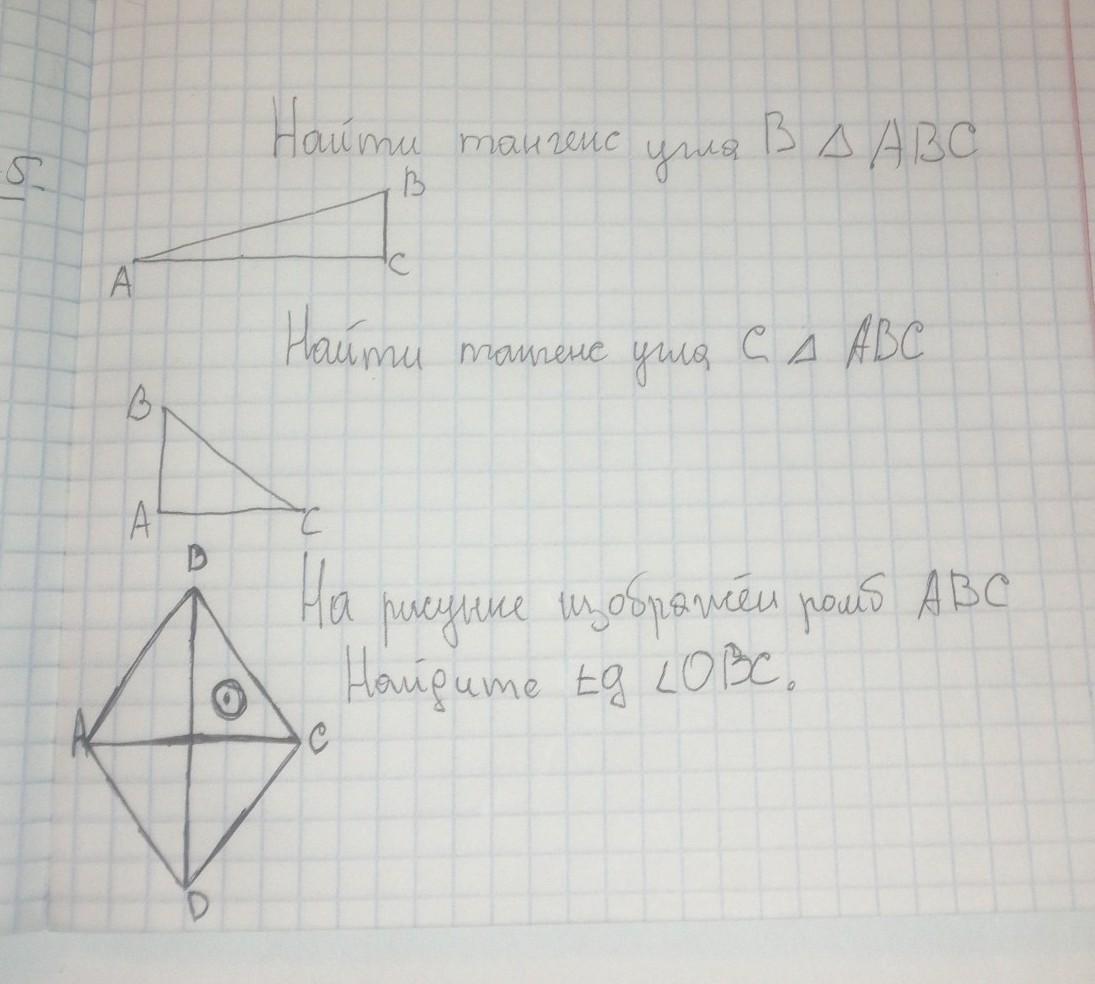 Найти тангенс угла B Δ ABC
5
B
A
C
Найти тангенс угла C Δ ABC
B
A
C
B
На рисунке изображён ромб ABC
Найдите tg ∠OBC.
O
A
C
D